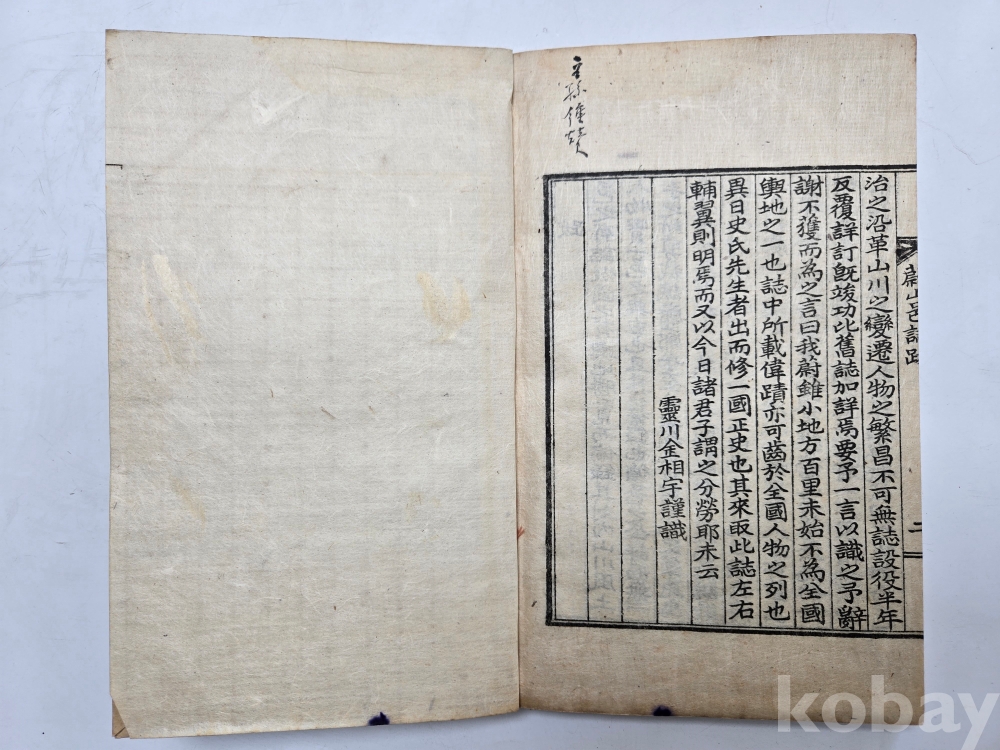 蔚山邑誌跋
二
治之沿革山川之變遷人物之繁昌不可無誌設役半年
反覆詳訂旣竣功比舊誌加詳焉要予一言以識之予辭
謝不獲而為之言曰我蔚雖小地方百里未始不為全國
輿地之一也誌中所載偉蹟亦可齒於全國人物之列也
異日史氏先生者出而修一國正史也其來取此誌左右
輔翼則明焉而又以今日諸君子謂之分勞耶未云
靈川金相宇謹識
kobay